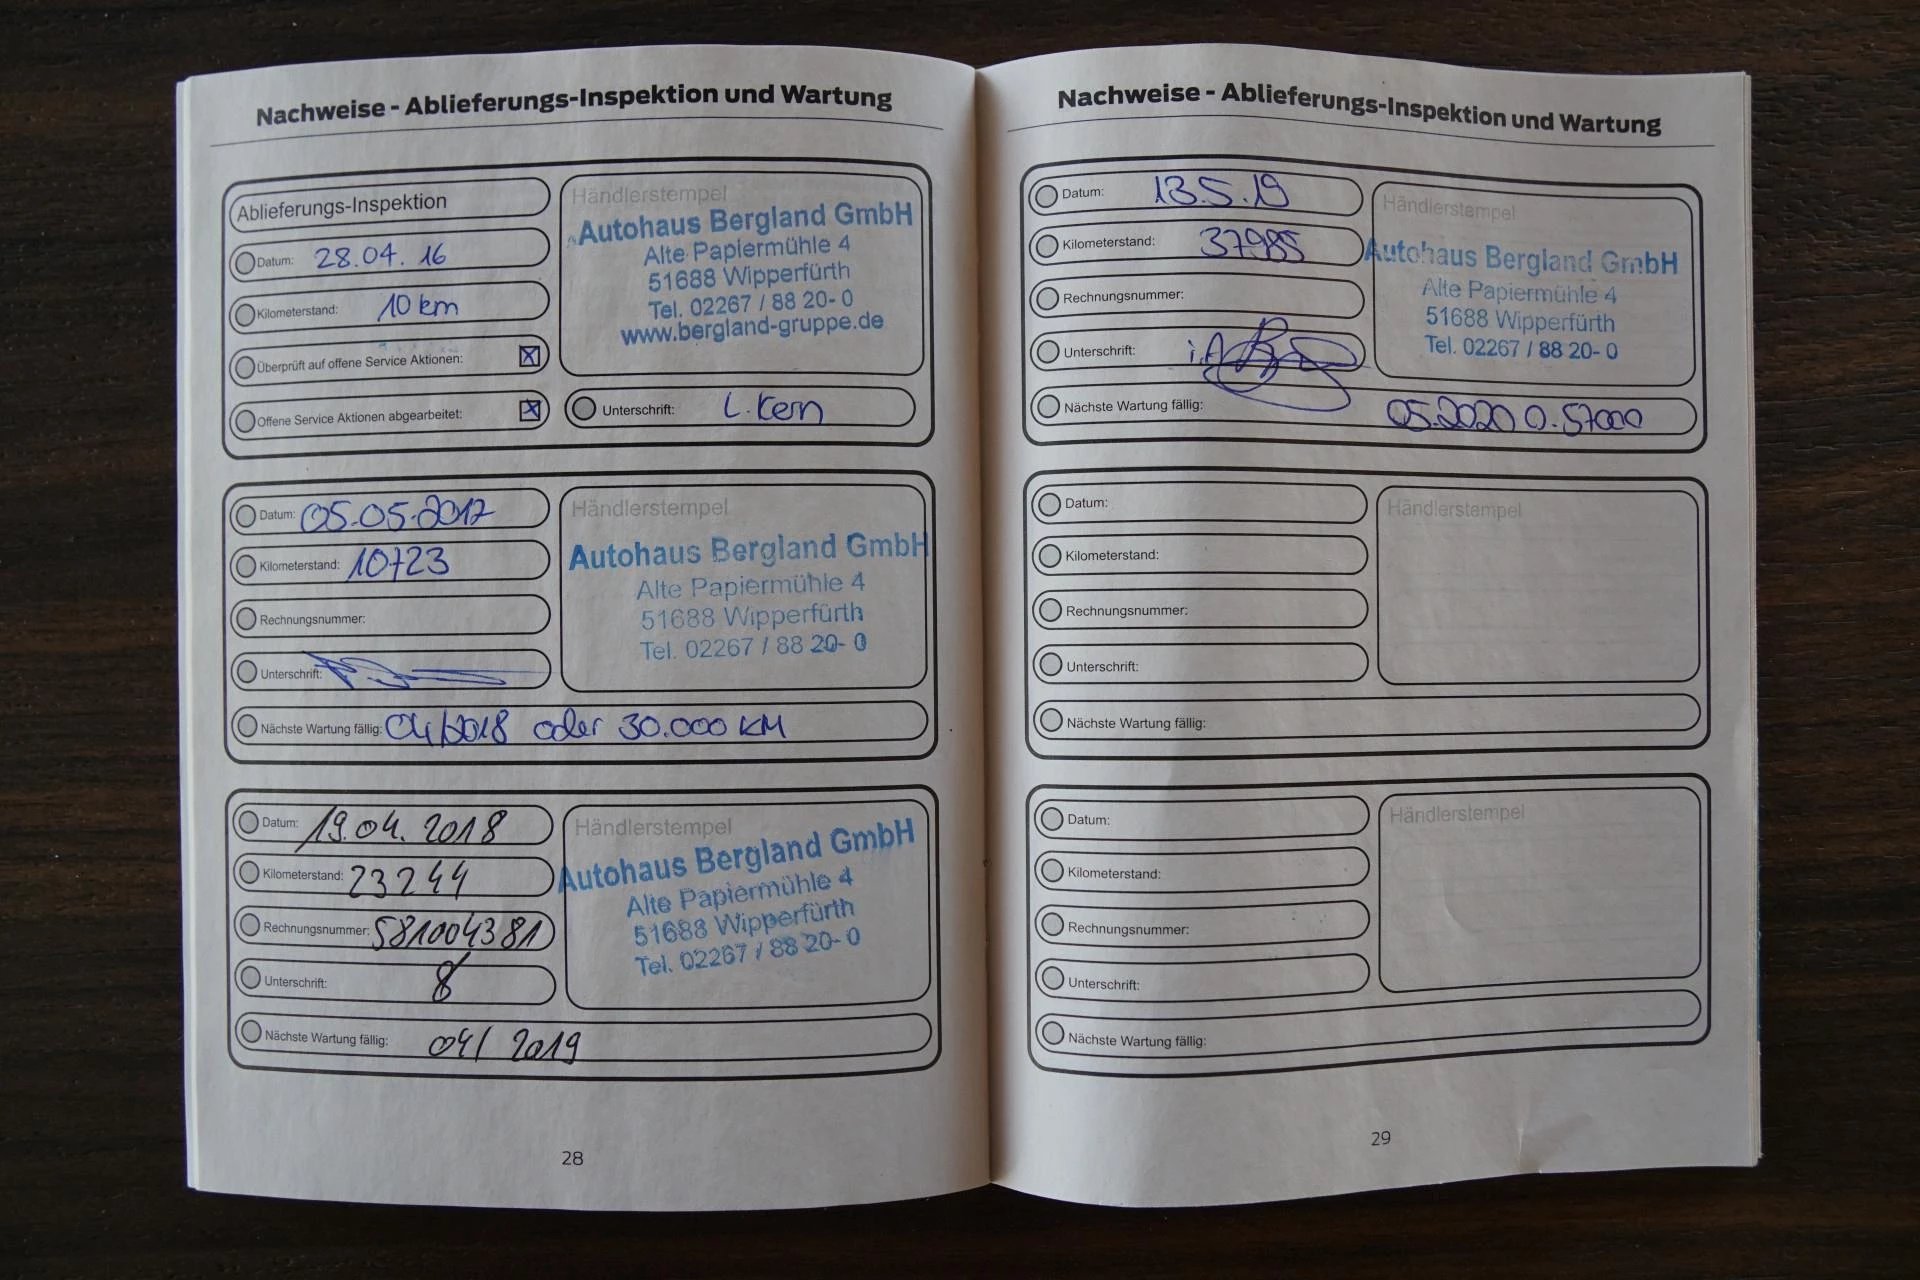 Nachweise - Ablieferungs-Inspektion und Wartung
Ablieferungs-Inspektion
Datum: 28.04.16
Kilometerstand: 10 km
Überprüft auf offene Service Aktionen: X
Offene Service Aktionen abgearbeitet: X
Händlerstempel
Autohaus Bergland GmbH
Alte Papiermühle 4
51688 Wipperfürth
Tel. 02267 / 88 20- 0
www.bergland-gruppe.de
Unterschrift: L. Kern
Datum: 05.05.2017
Kilometerstand: 10723
Rechnungsnummer:
Unterschrift:
Händlerstempel
Autohaus Bergland GmbH
Alte Papiermühle 4
51688 Wipperfürth
Tel. 02267 / 88 20- 0
Nächste Wartung fällig: 04/2018 oder 30.000 KM
Datum: 19.04.2018
Kilometerstand: 23244
Rechnungsnummer: 581004381
Unterschrift:
Händlerstempel
Autohaus Bergland GmbH
Alte Papiermühle 4
51688 Wipperfürth
Tel. 02267 / 88 20- 0
Nächste Wartung fällig: 04/2019
28
Nachweise - Ablieferungs-Inspektion und Wartung
Datum: 13.5.19
Kilometerstand: 37985
Rechnungsnummer:
Unterschrift: i.A
Händlerstempel
Autohaus Bergland GmbH
Alte Papiermühle 4
51688 Wipperfürth
Tel. 02267 / 88 20- 0
Nächste Wartung fällig: 05.2020 o. 57000
Datum:
Kilometerstand:
Rechnungsnummer:
Unterschrift:
Händlerstempel
Nächste Wartung fällig:
Datum:
Kilometerstand:
Rechnungsnummer:
Unterschrift:
Händlerstempel
Nächste Wartung fällig:
29